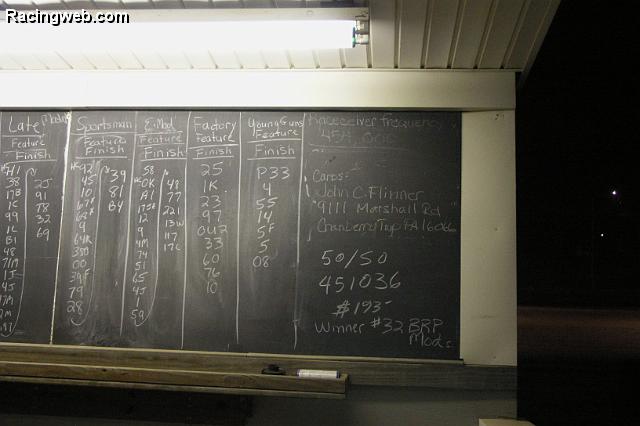 Racingweb.com
Late Models
Feature
Finish
38
17B
1C
99
1C
B1
48
2J
91
T8
32
69
Sportsman
Feature
Finish
92
45
10
9
64K
00
39F
79
28
39
81
B4
E-Mod
Feature
Finish
58
OK
A1
12
9
4M
74
51
65
4J
1
59
48
77
221
13W
117
17C
Factory
Feature
Finish
25
1K
23
97
OU2
33
60
76
10
Young Guns
Feature
Finish
P33
4
55
14
5F
5
08
Raceceiver Frequency
454.
Cards:
John C. Flinner
9111 Marshall Rd
Cranberry Twp PA 16066
50/50
451036
$193-
Winner #32 BRP
Mods